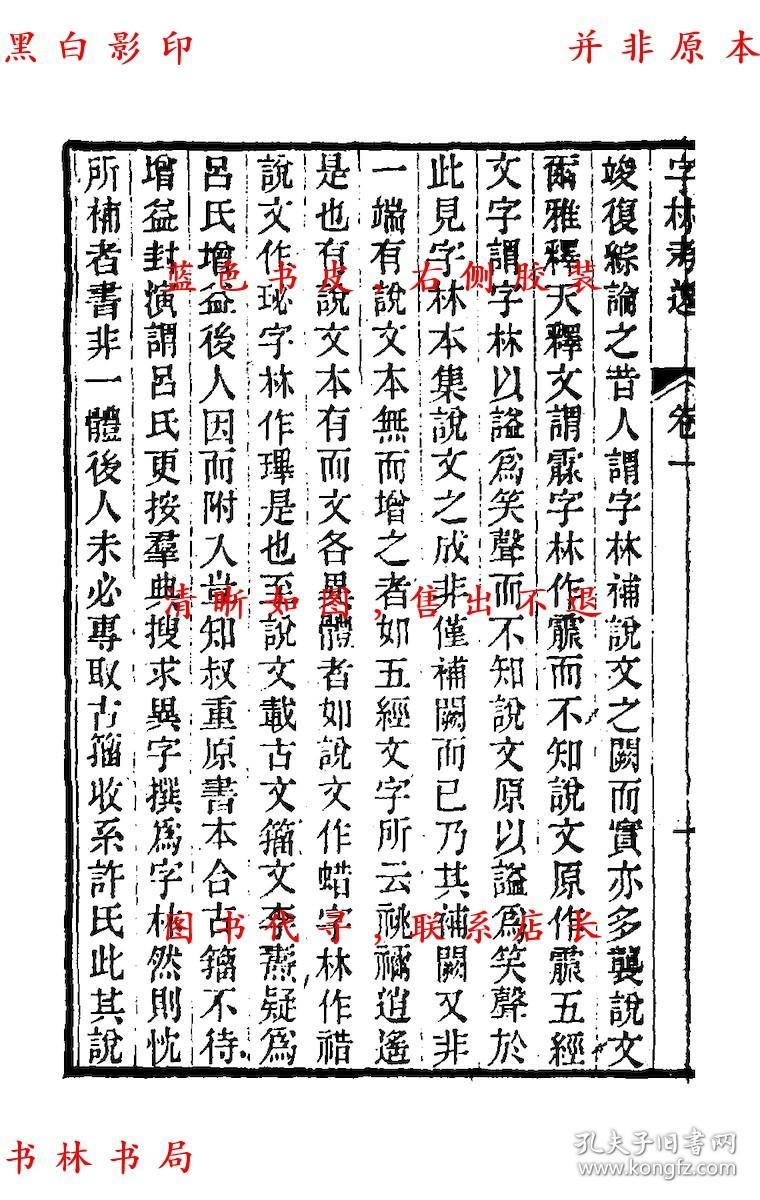 黑白影印
并非原本
字林考逸 卷一 十
竣復綜論之昔人謂字林補說文之闕而實亦多襲說文
爾雅釋天釋文謂霡字林作霢而不知說文原作霡五經
文字謂字林以謚爲笑聲而不知說文原以謚爲笑聲於
此見字林本集說文之成非僅補闕而已乃其補闕又非
一端有說文本無而增之者如五經文字所云祧禰逍遙
是也有說文本有而文各異體者如說文作蜡字林作䄍
說文作珌字林作琿是也至說文載古文籀文李燾疑爲
呂氏增益後人因而附入豈知叔重原書本合古籀不待
增益封演謂呂氏更按羣典搜求異字撰爲字林然則忱
所補者書非一體後人未必專取古籀收系許氏此其說
蓝色书皮,右侧胶装
清晰如图,售出不退
图书代寻,联系店长
书林书局
孔夫子旧书网
www.kongfz.com